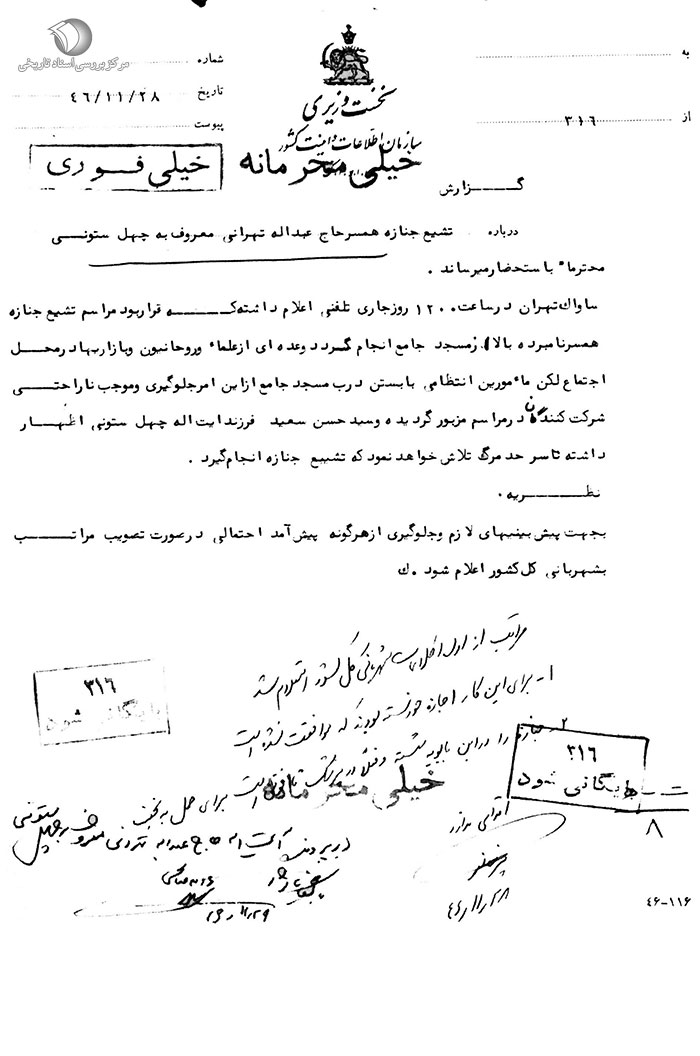 مرکز بررسی اسناد تاریخی
به
شماره
نخست وزیری
تاریخ ۴۶/۱۱/۲۸
از ۳۱۶
پیوست
سازمان اطلاعات و امنیت کشور
خیلی محرمانه
خیلی فوری
گزارش
درباره تشیع جنازه همسر حاج عبداله تهرانی معروف به چهل ستونی
محترماً باستحضار میرساند .
ساواک تهران در ساعت ۱۲۰۰ روز جاری تلفنی اعلام داشته که قرار بود مراسم تشیع جنازه
همسر نامبرده بالا از مسجد جامع انجام گردد و عده ای از علماء و روحانیون و بازاریها در محل
اجتماع لکن مأمورین انتظامی با بستن درب مسجد جامع از این امر جلوگیری و موجب ناراحتی
شرکت کنندگان در مراسم مزبور گردیده و سید حسن سعید فرزند ایت اله چهل ستونی اظهار
داشته تا سر حد مرگ تلاش خواهد نمود که تشییع جنازه انجام گیرد .
نظریه .
بجهت پیش بینیهای لازم و جلوگیری از هرگونه پیش آمد احتمالی در صورت تصویب مراتب
بشهربانی کل کشور اعلام شود . ك
مراتب از اداره اطلاعات شهربانی کل کشور استعلام شد
۱- برای این کار اجازه خواسته بودند که موافقت نشده است
۲- جنازه را در ابن بابویه شسته و فعلاً در
است برای حمل به نجف
۳۱۶
بایگانی شود
۳۱۶
بایگانی شود
خیلی محرمانه
در پرونده آیت اله حاج عبداله تهرانی معروف به چهل ستونی
۴۶/۱۱/۲۸
۴۶/۱۱/۲۹
۸
۴۶-۱۱۶